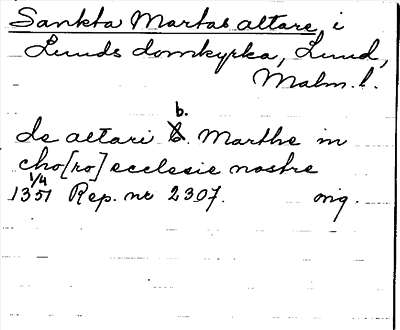 Sankta Martas altare i
Lunds domkyrka, Lund,
Malm. l.
de altari b. Marthe in
cho[ro] ecclesie nostre
1351 1/4 Rep. nr 2307. orig.